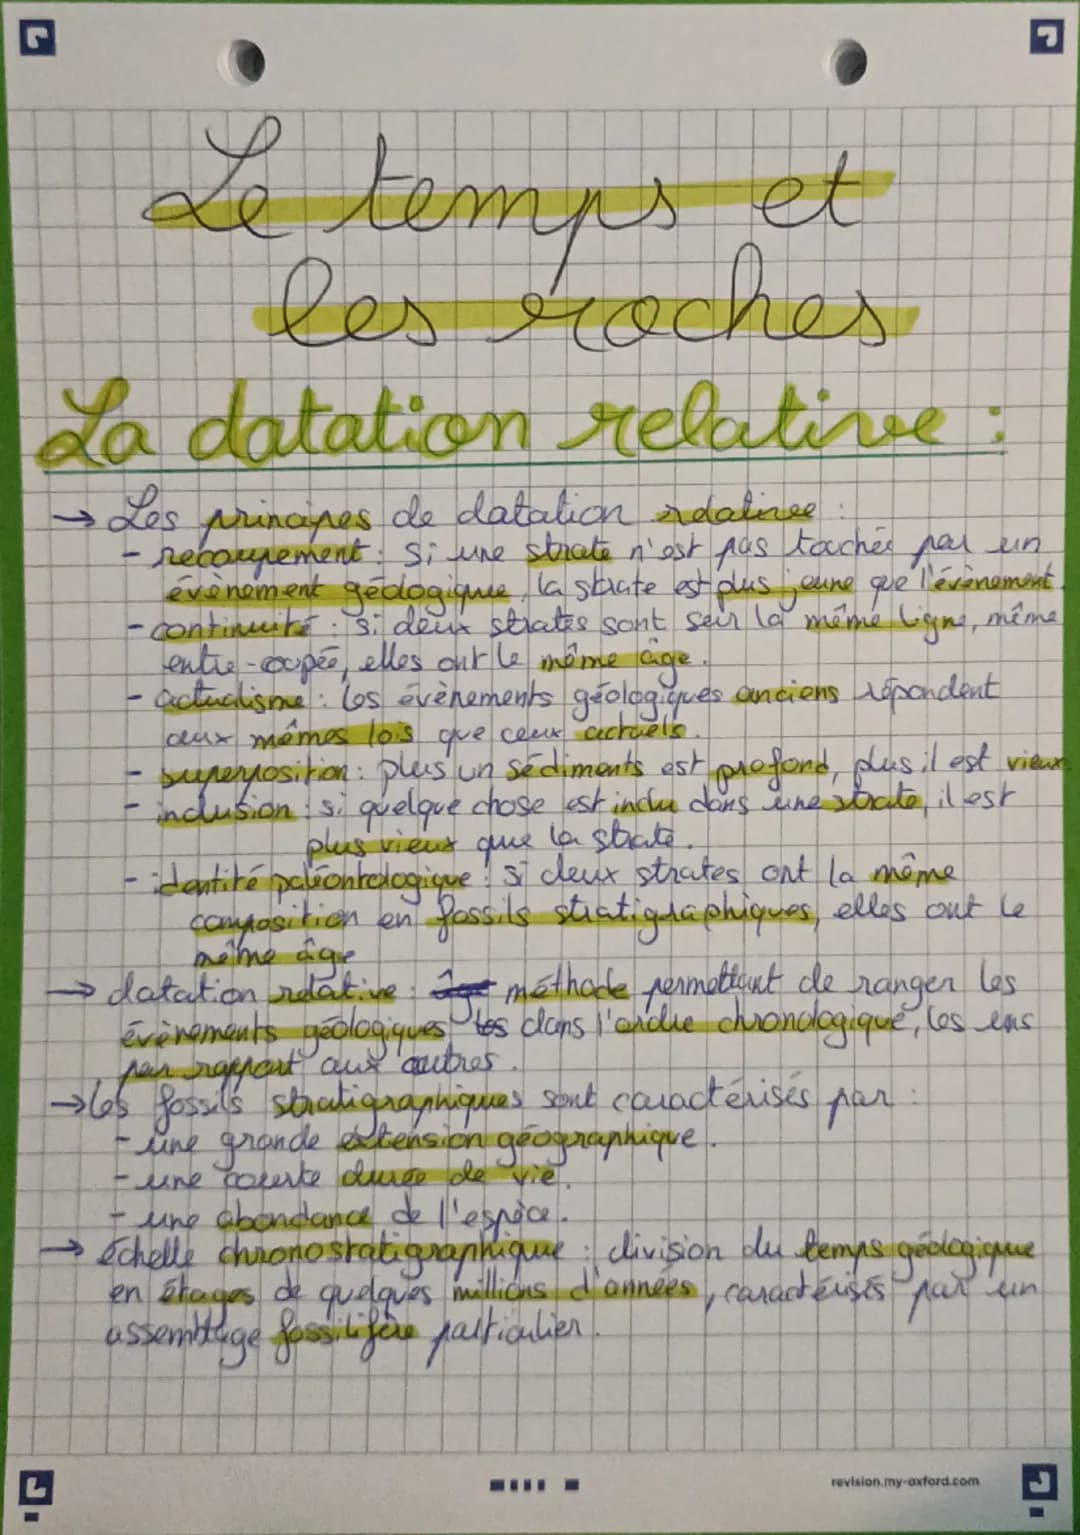 Le temps et
les roches
La datation relative :
→ Les principes de datation relative :
- recoupement : Si une strate n'est pas touchée par un
évènement géologique, la strate est plus jeune que l'évènement.
- continuité : si deux strates sont sur la même ligne, même
entre-coupée, elles ont le même âge.
- actualisme : les évènements géologiques anciens répondent
aux mêmes lois que ceux actuels.
- superposition : plus un sédiments est profond, plus il est vieux
- inclusion : si quelque chose est inclu dans une strate, il est
plus vieux que la strate.
- identité paléontologique : si deux strates ont la même
composition en fossils stratigraphiques, elles ont le
même âge
→ datation relative : méthode permettant de ranger les
évènements géologiques les dans l'ordre chronologique, les uns
par rapport aux autres.
→ les fossils stratigraphiques sont caractérisés par :
- une grande extension géographique.
- une courte durée de vie.
- une abondance de l'espèce.
→ échelle chronostratigraphique : division du temps géologique
en étages de quelques millions d'années, caractérisés par un
assemblage fossilifère particulier.
revision.my-oxford.com